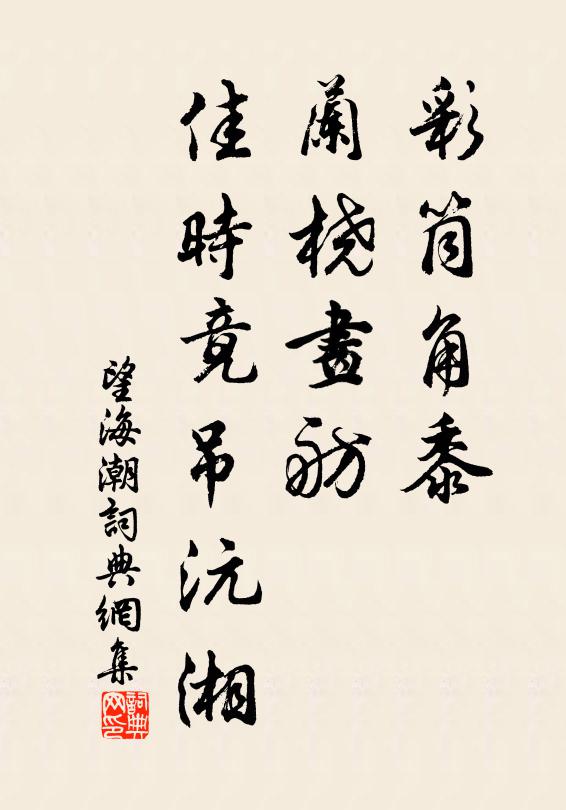 彩筒角黍
蘭橈畫舫
佳時竟吊沅湘
望海潮詞典網集
詞典
网印